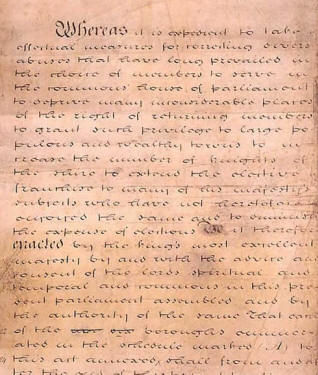 Whereas it is expedient to take
effectual measures for correcting divers
abuses that have long prevailed in
the choice of members to serve in
the commons house of parliament
to deprive many inconsiderable places
of the right of returning members
to grant such privilege to large po
pulous and wealthy towns to in
crease the number of knights of
the shire to extend the elective
franchise to many of his majesty's
subjects who have not heretofor
enjoyed the same and to diminish
the expense of elections Be it therefor
enacted by the kings most excellent
majesty by and with the advice and
consent of the lords spiritual and
temporal and commons in this pre
sent parliament assembled and by
the authority of the same That each
of the boroughs enumer
ated in the schedule marked (A) to
this act annexed shall from and af
ter the end of